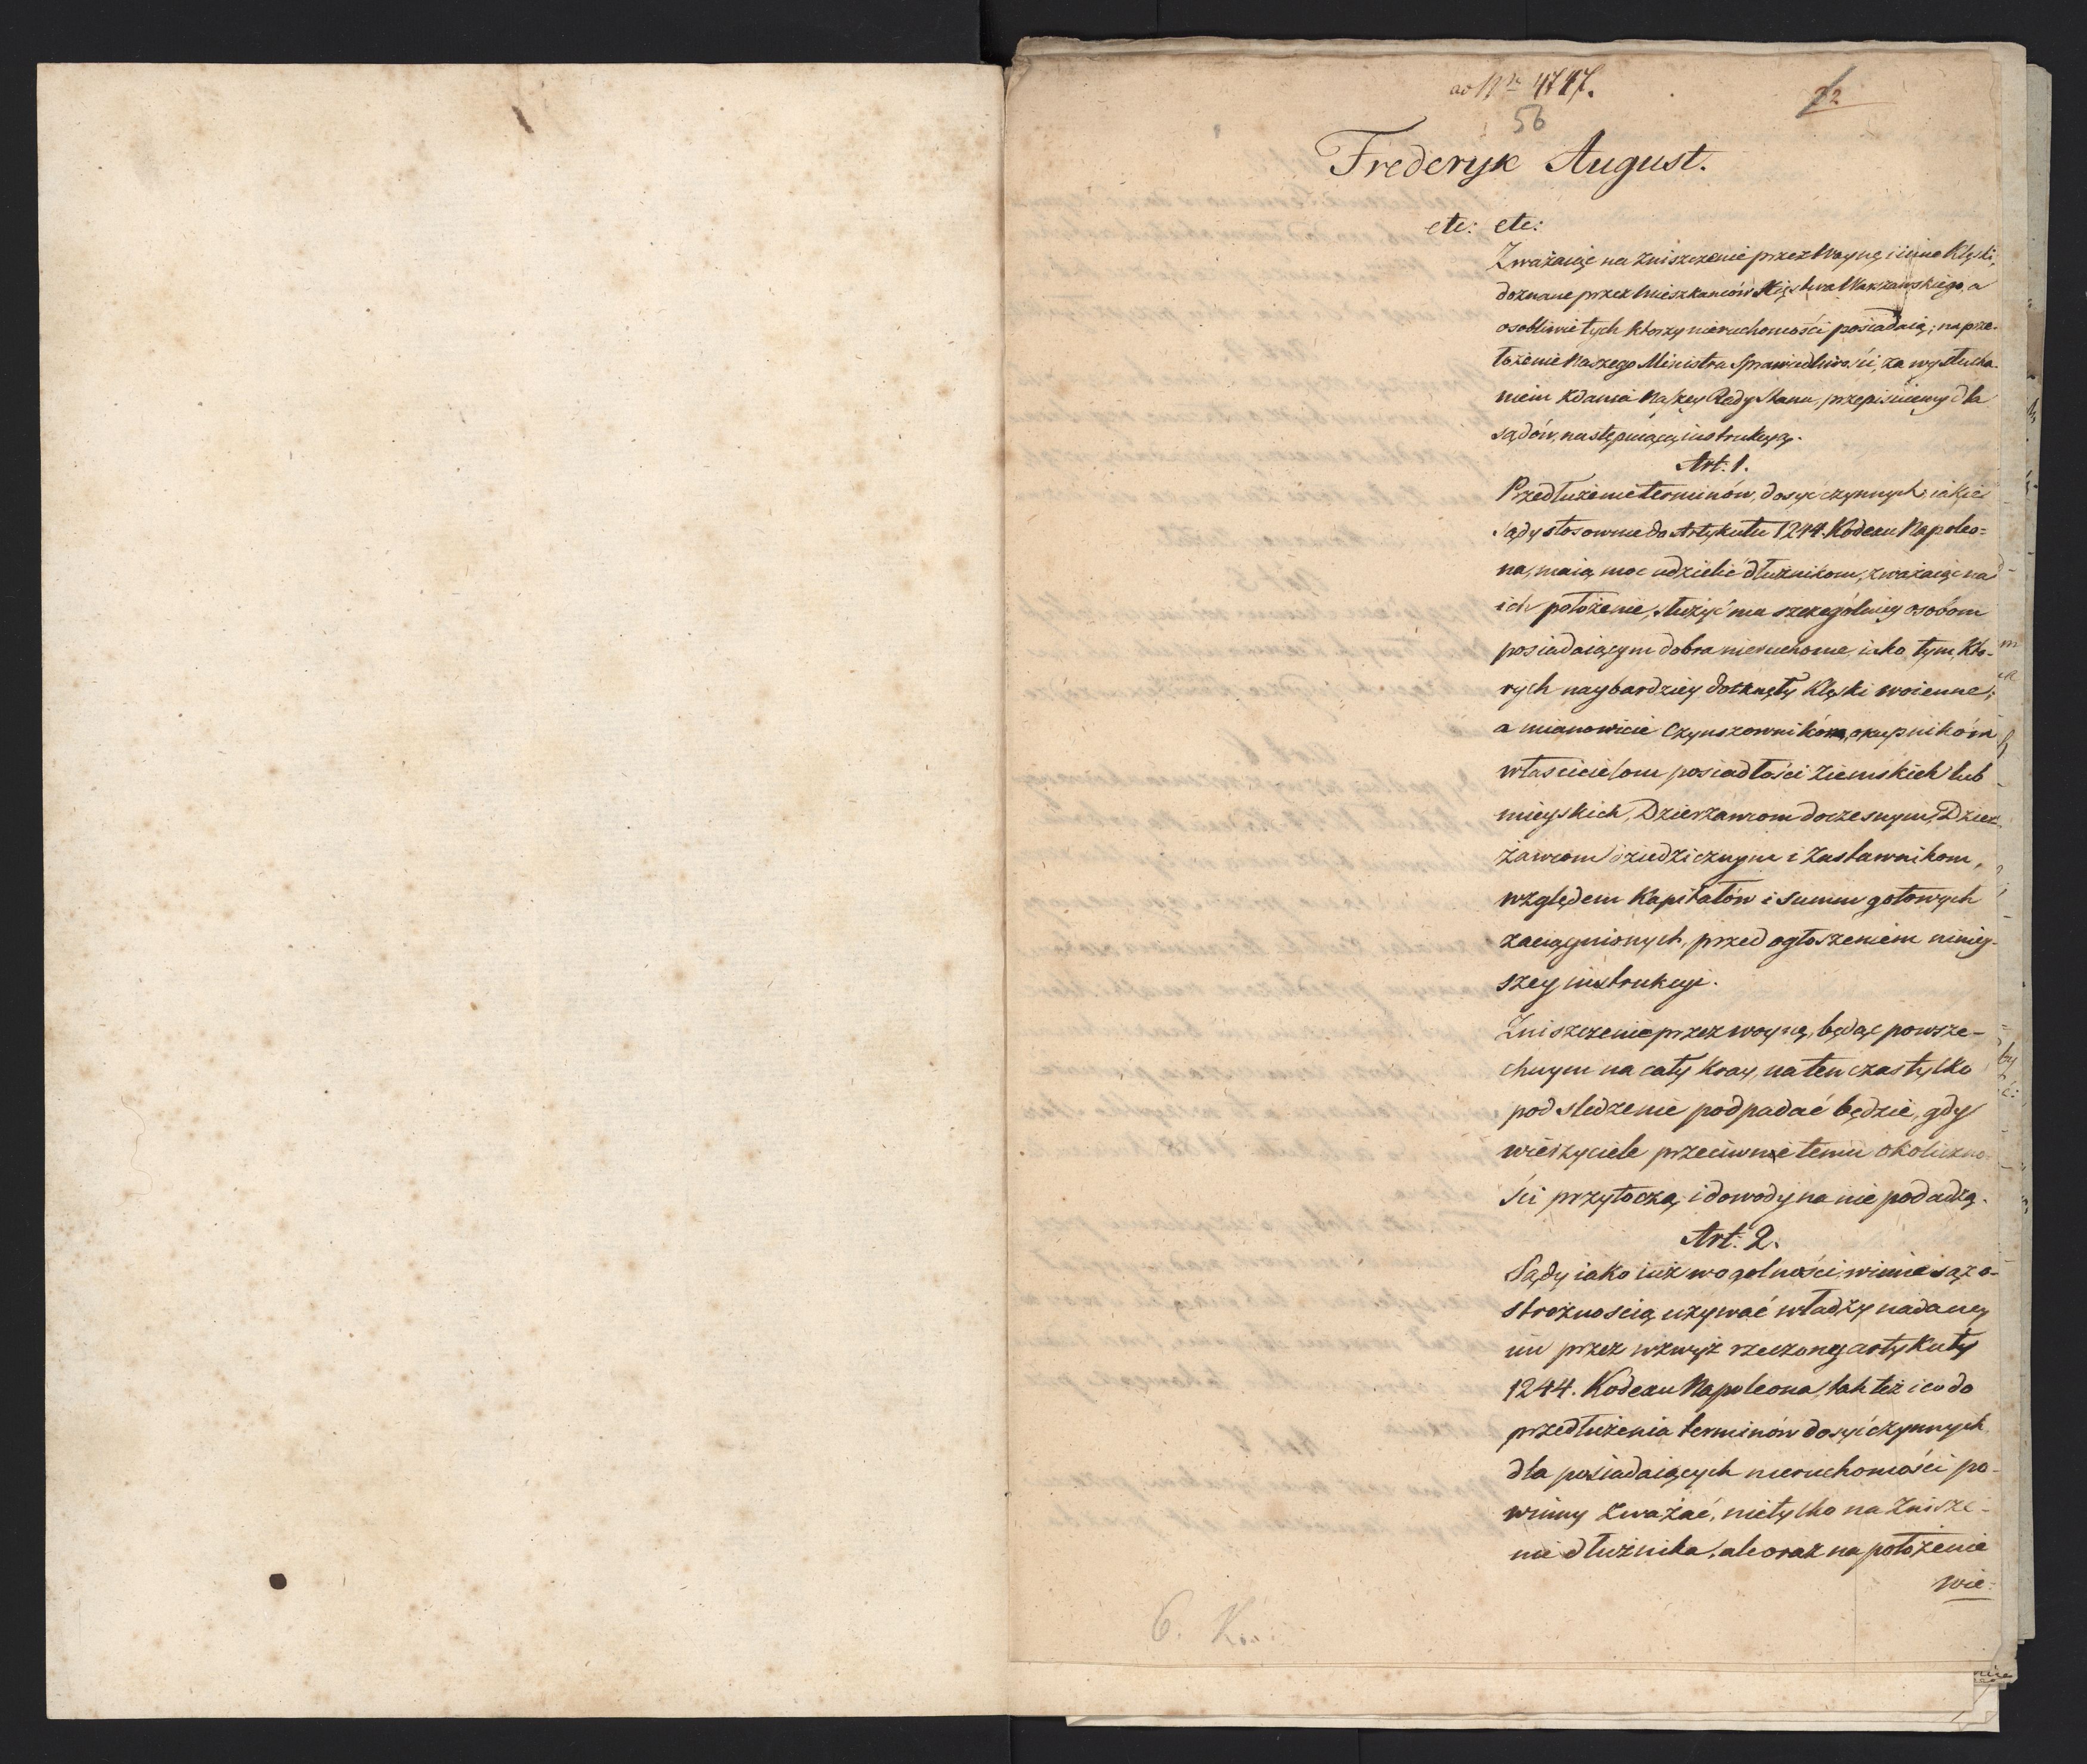 ad Nr 4747.
22
56
Frederyk August.
etc: etc:
Zważaiąc na zniszczenie przez Woynę i inne Klęski,
doznane przez Mieszkańców Xięstwa Warszawskiego, a
osobliwie tych ktorzy nieruchomości posiadaią; na prze-
łożenie Naszego Ministra Sprawiedliwości, za wysłucha-
niem zdania Naszey Rady Stanu, przepisuiemy dla
sądów, następuiącą instrukcyą.
Art: 1.
Przedłużenie terminów, dosyć czynnych, iakie
Sądy stosownie do Artykułu 1244. Kodexu Napoleo=
na, maią moc udzielić dłużnikom, zważaiąc na
ich położenie, służyć ma szczególniey osobom
posiadaiącym dobra nieruchome, iako tym, któ-
rych naybardziey dotknęły Klęski woienne;
a mianowicie Czynszownikom, okupnikóm
włascicielom posiadłości ziemskich lub
mieyskich, Dzierżawcom doczesnym, Dzier-
żawcom dziedzicznym i Zastawnikom,
względem Kapitałów i summ gotowych
zaciągnionych, przed ogłoszeniem niniey-
szey instrukcyi.
Zniszczenie przez woynę, będąc powsze-
chnym na cały Kray, na ten czas tylko
pod sledzenie podpadać będzie, gdy
wierzyciele przeciwne temu okoliczno-
ści przytoczą, i dowody na nie podadzą.
Art: 2.
Sądy iako iuż wogolności, winne są z o-
strożnoscią używać władzy nadaney
im przez wzwyż rzeczony artykuły
1244. Kodexu Napoleona, tak też i co do
przedłużenia terminów dosyć czynnych
dla posiadaiących nieruchomości po-
winny zważać, nietylko na Zniszcze-
nie dłużnika, ale oraz na położenie
wie=
6.